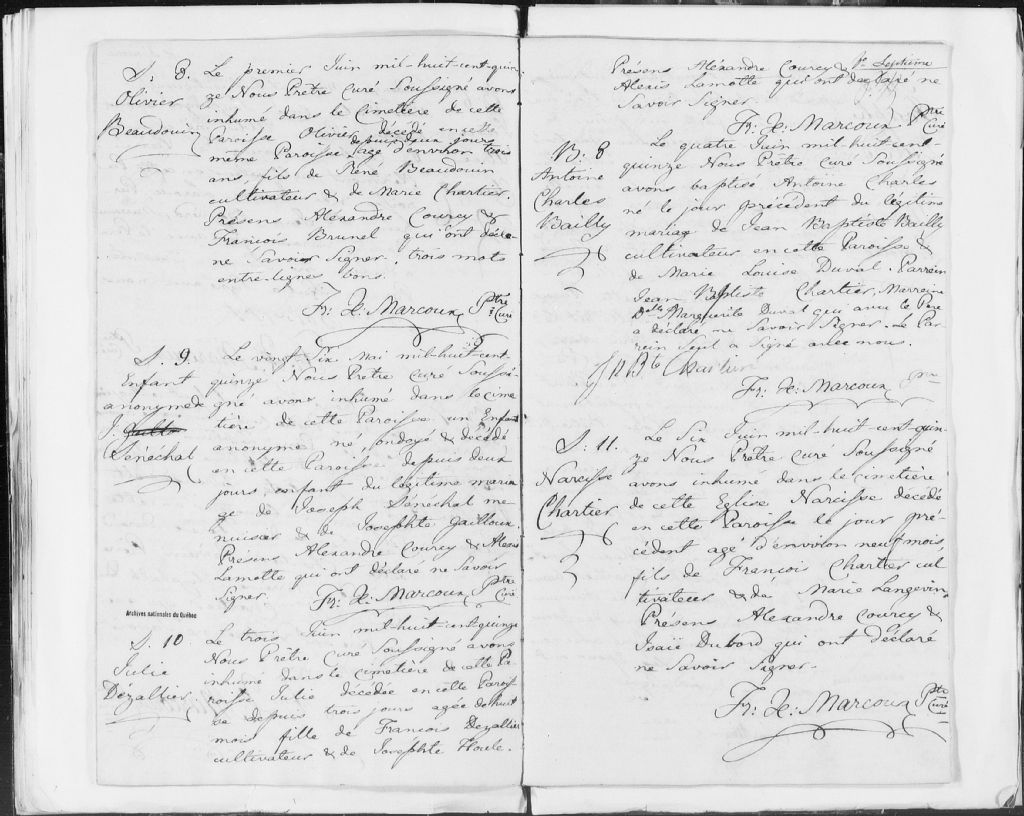 S: 8.
Olivier
Beaudouin
Le premier Juin mil-huit-cent-quin
ze Nous Prêtre Curé Soussigné avons
inhumé dans le Cimetière de cette
Paroisse Olivier décédé en cette
même Paroisse depuis deux jours agé d'environ trois
ans, fils de Réné Beaudouin
cultivateur & de Marie Chartier.
Présens Alexandre Courcy &
François Brunel qui ont décla-
ré ne Savoir Signer; trois mots
entre-lignes bons.
Fr: X: Marcoux Ptre Curé
S. 9.
Enfant
anonyme de
J.
Sénéchal
Le vingt-Six Mai mil-huit-cent-
quinze Nous Prêtre Curé Soussi-
gné avons inhumé dans le cime
tière de cette Paroisse un Enfant
anonyme né, ondoyé & décédé
en cette Paroisse depuis deux
jours, enfant du légitime maria
ge de Joseph Sénéchal me
nuisier & de Josephte Gailloux.
Présens Alexandre Courcy & Alexis
Lamotte qui ont déclaré ne Savoir
Signer.
Fr: X: Marcoux Ptre Curé
Archives nationales du Québec
S. 10
Julie
Dézallier.
Le trois Juin mil-huit-cent-quinze
Nous Prêtre Curé Soussigné avons
inhumé dans le cimetière de cette Pa
roisse Julie décédée en cette Parois
se depuis trois jours agée de huit
mois fille de François Dezallier
cultivateur & de Josephte Houle.
Présens Alexandre Courcy &
Alexis Lamotte qui ont déclaré ne
Savoir Signer.
Fr: X: Marcoux Ptre Curé
B: 8
Antoine
Charles
Bailly
Le quatre Juin mil-huit-cent-
quinze Nous Prêtre Curé Soussigné
avons baptisé Antoine Charles
né le jour précédent du légitime
mariage de Jean Baptiste Bailly
cultivateur en cette Paroisse &
de Marie Louise Duval. Parrein
Jean Baptiste Chartier, Marreine
Dlle Marguerite Duval qui avec le Pere
a déclaré ne Savoir Signer. Le Par
rein Seul a Signé avec nous.
J Bte Chartier
Fr: X: Marcoux Ptre
S: 11.
Narcisse
Chartier
Le Six Juin mil-huit-cent-quin
ze Nous Prêtre Curé Soussigné
avons inhumé dans le cimetière
de cette Eglise Narcisse décédé
en cette Paroisse le jour pré-
cédent agé d'environ neuf mois,
fils de François Chartier cul
tivateur & de Marie Langevin
Présens Alexandre Courcy &
Isaïe Dubord qui ont déclaré
ne Savoir Signer.
Fr: X: Marcoux Ptre Curé